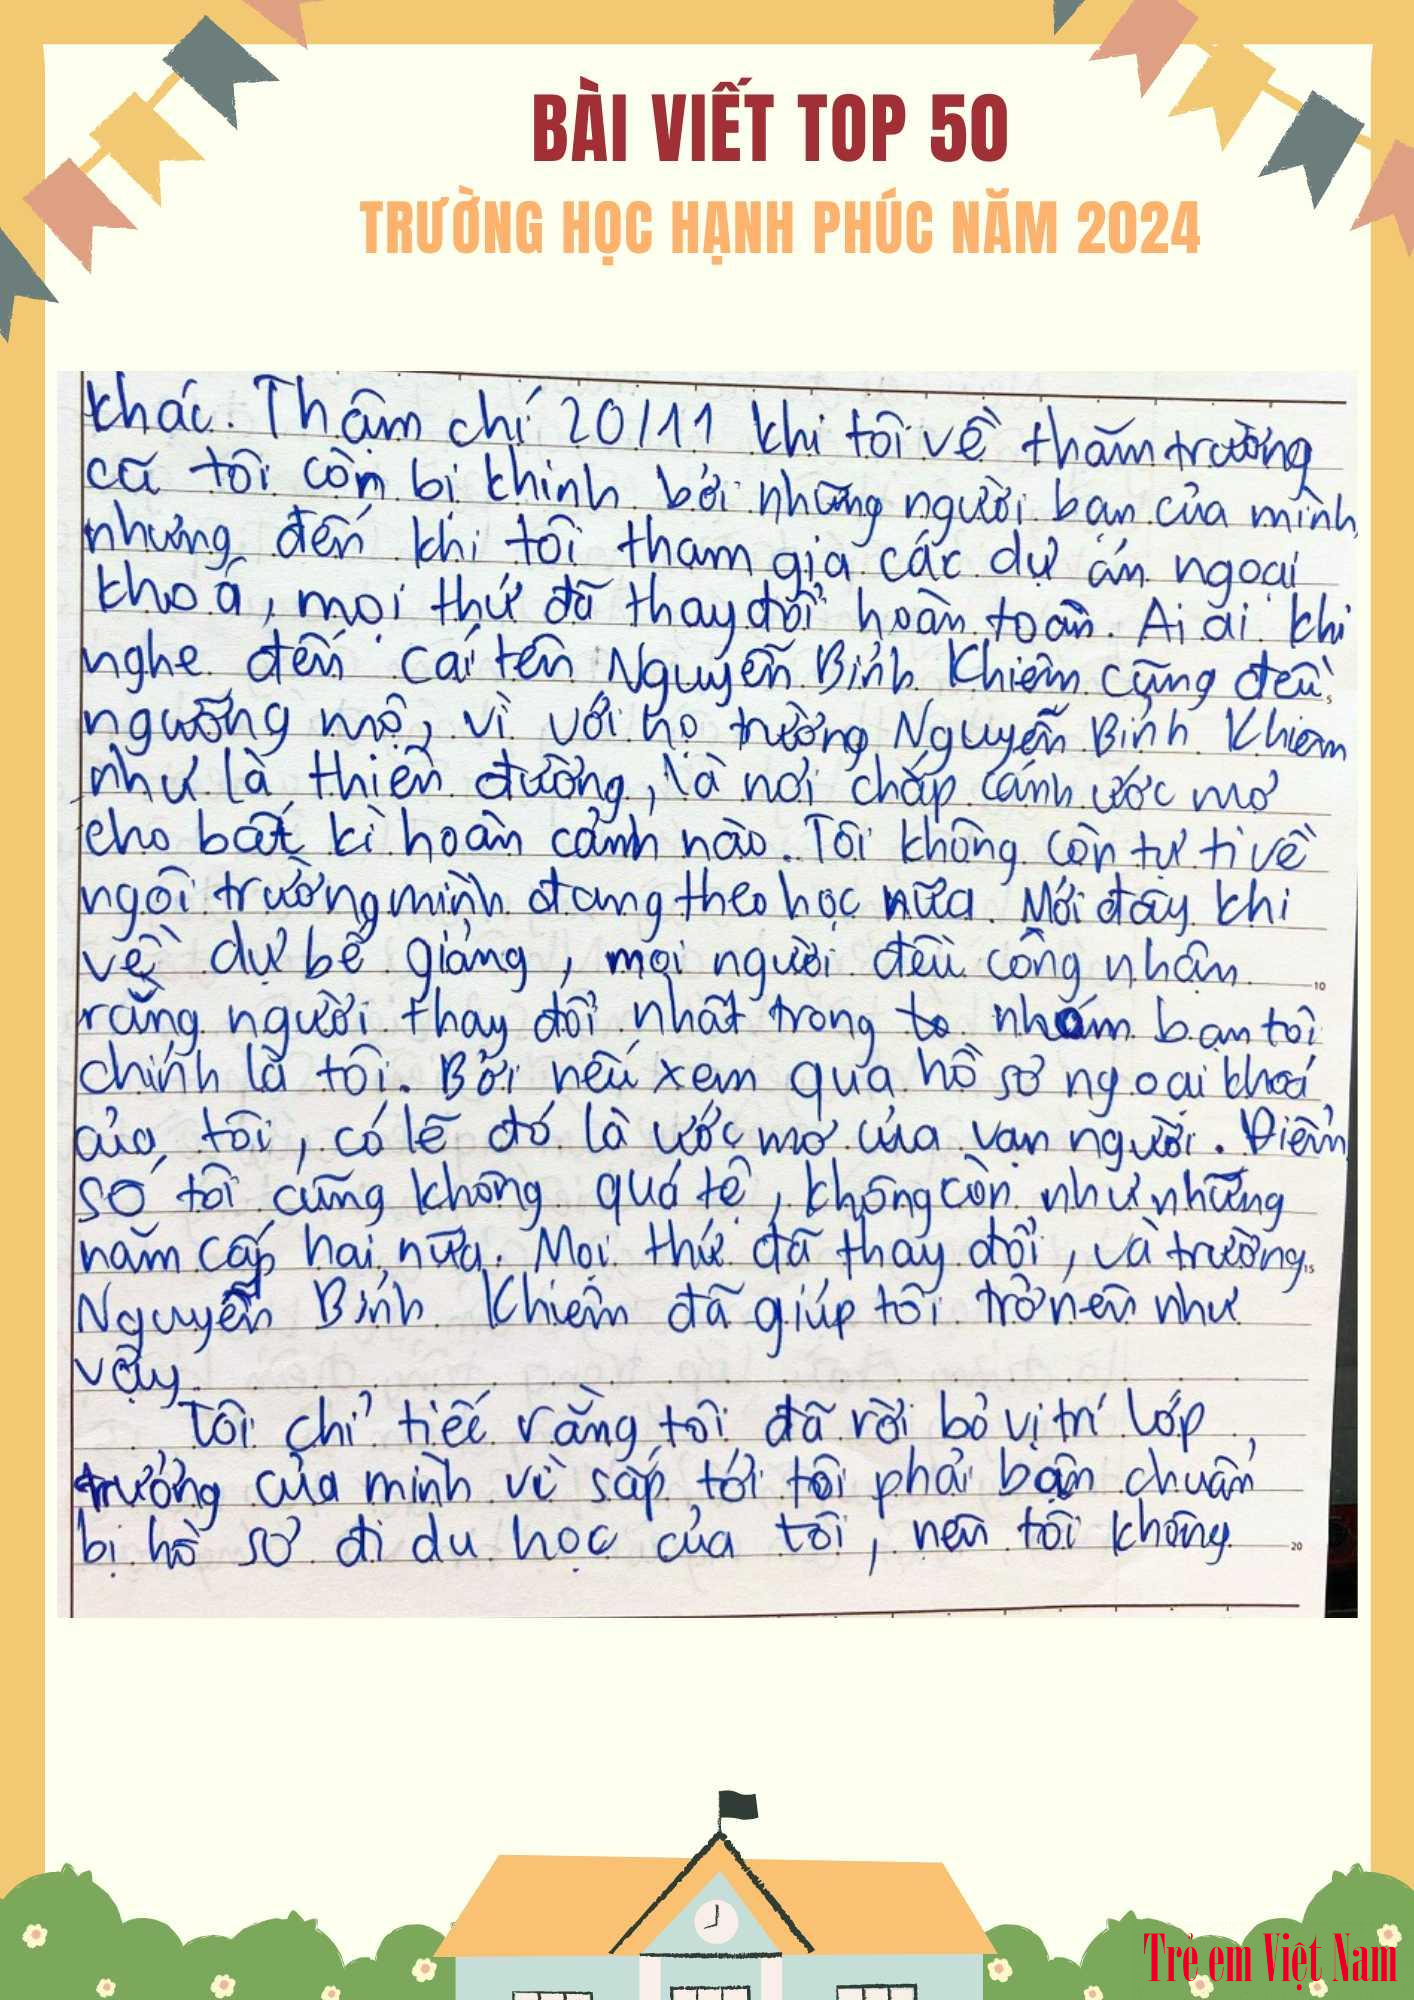 BÀI VIẾT TOP 50
TRƯỜNG HỌC HẠNH PHÚC NĂM 2024
khác. Thậm chí 20/11 khi tôi về thăm trường
cũ tôi còn bị khinh bởi những người bạn của mình,
nhưng đến khi tôi tham gia các dự án ngoại
khoá, mọi thứ đã thay đổi hoàn toàn. Ai ai khi
nghe đến cái tên Nguyễn Bỉnh Khiêm cũng đều
5
ngưỡng mộ, vì với họ trường Nguyễn Bỉnh Khiêm
như là thiên đường, là nơi chắp cánh ước mơ
cho bất kì hoàn cảnh nào. Tôi không còn tự ti về
ngôi trường mình đang theo học nữa. Mới đây khi
về dự bế giảng, mọi người đều công nhận
10
rằng người thay đổi nhất trong to nhóm bạn tôi
chính là tôi. Bởi nếu xem qua hồ sơ ngoại khoá
của tôi, có lẽ đó là ước mơ của vạn người. Điểm
số tôi cũng không quá tệ, không còn như những
năm cấp hai nữa. Mọi thứ đã thay đổi, và trường
15
Nguyễn Bỉnh Khiêm đã giúp tôi trở nên như
vậy.
Tôi chỉ tiếc rằng tôi đã rời bỏ vị trí lớp
trưởng của mình vì sắp tới tôi phải bận chuẩn
bị hồ sơ đi du học của tôi, nên tôi không
20
Trẻ em Việt Nam